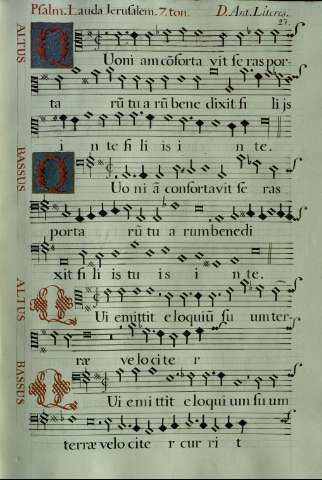 Psalm. Lauda Jerusalem. 7. ton. D. Ant. Literes.
23.
ALTUS
Quoni am cõforta vit se ras por-
ta rũ tu a rũ bene dixit fi lijs
i n te fi li is i n te.
BASSUS
Quo ni ã confortavit se ras
porta rũ tu a rum benedi
xit fi li is tu i s i n te.
ALTUS
Qui emittit e loquiũ su um ter-
ræ velo cite r
BASSUS
Qui emi ttit e loqui um su um
terræ velo cite r cur ri t